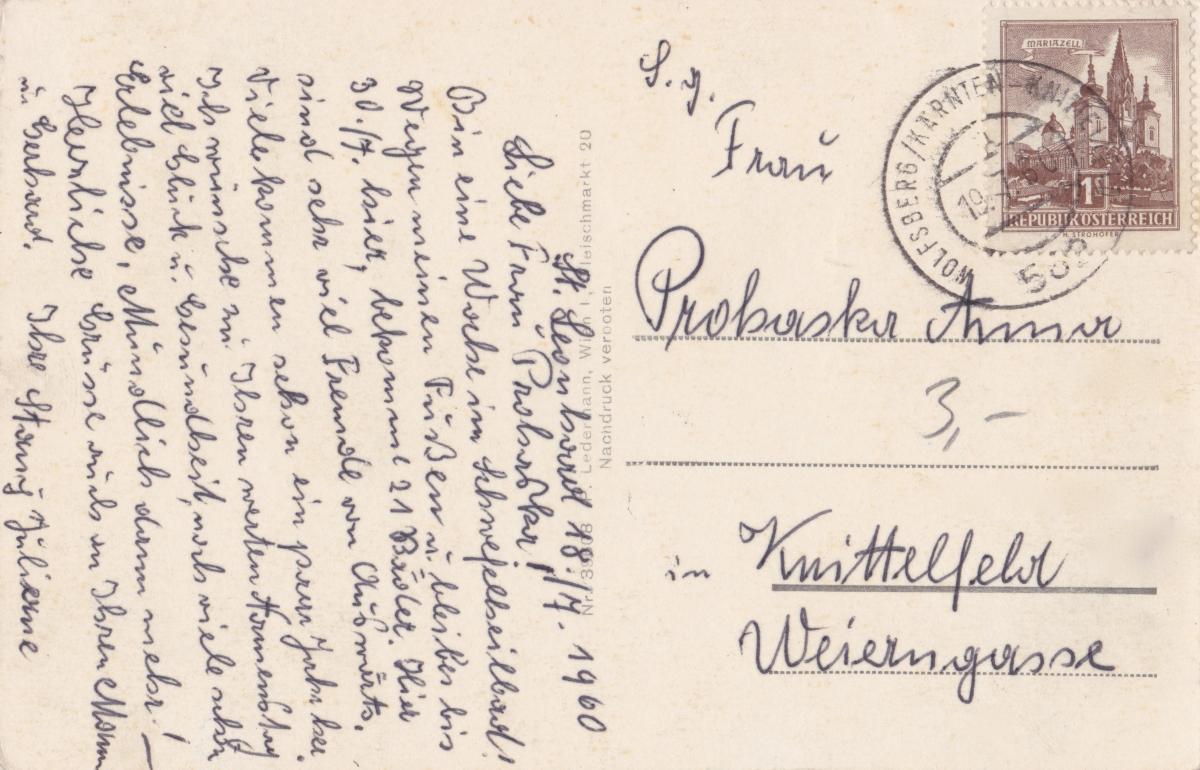 St. Leonhard 18./7. 1960
Liebe Frau Probaska!
Bin eine Woche im Schwefelheilbad!
Wegen meinen Füßen u. bleibe bis
30./7. hier, bekomme 21 Bäder. Hier
sind sehr viel Fremde von Auswärts.
Viele kommen schon ein paar Jahr her.
Ich wünsche zu Ihren werten Namenstag
viel Glück u. Gesundheit, noch viele schö
Erlebnisse, Mündlich dann mehr! —
Herzliche Grüsse auch an Ihren Mann
u. Gerhard. Ihre Julienne
Nachdruck verboten
S. g.
Frau
Probaska Anna
3,-
in Knittelfeld
Weierngasse
MARIAZELL
1
REPUBLIK ÖSTERREICH
H. STROHOFER
WOLFSBERG/KÄRNTEN